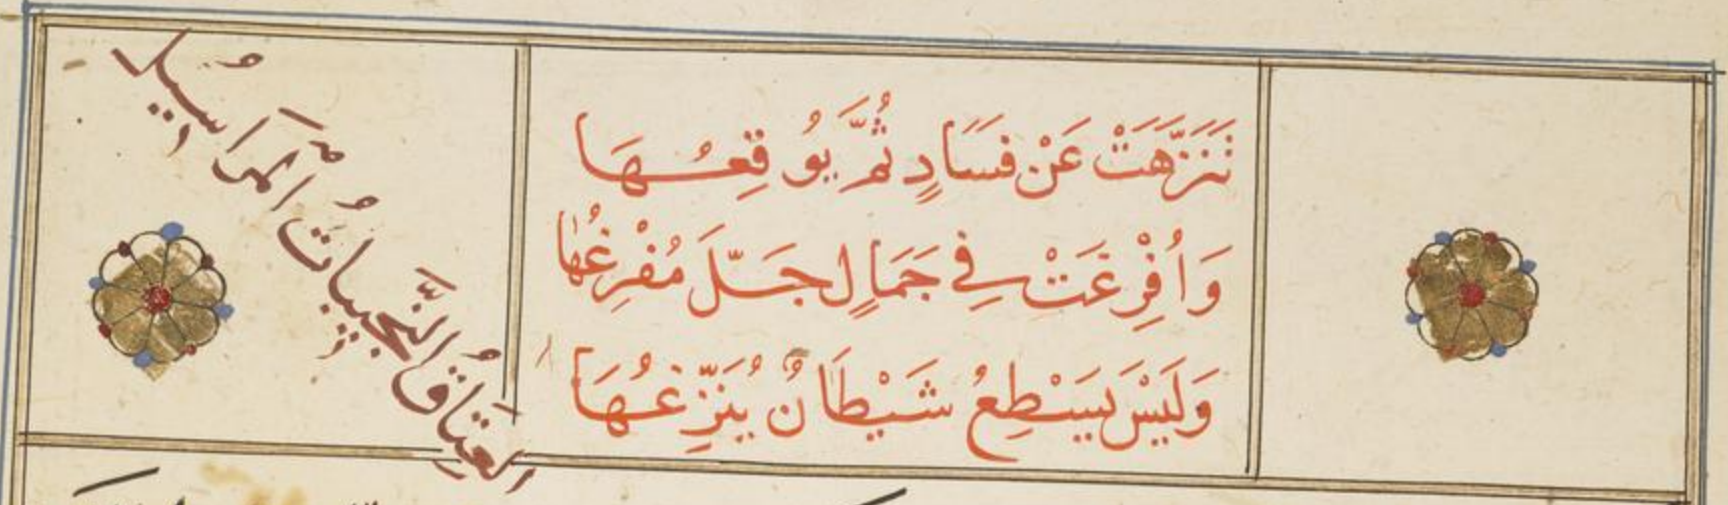 تَنَزَّهَتْ عَنْ فَسَادٍ ثُمَّ يُوقِعُهَا
وَأُفْرِغَتْ فِي جَمَالٍ جَلَّ مُفْرِغُهَا
وَلَيْسَ يَسْطِعُ شَيْطَانٌ يُنَزِّغُهَا
العِتَاقُ النَّجِيبَاتُ المَرَاسِيلُ